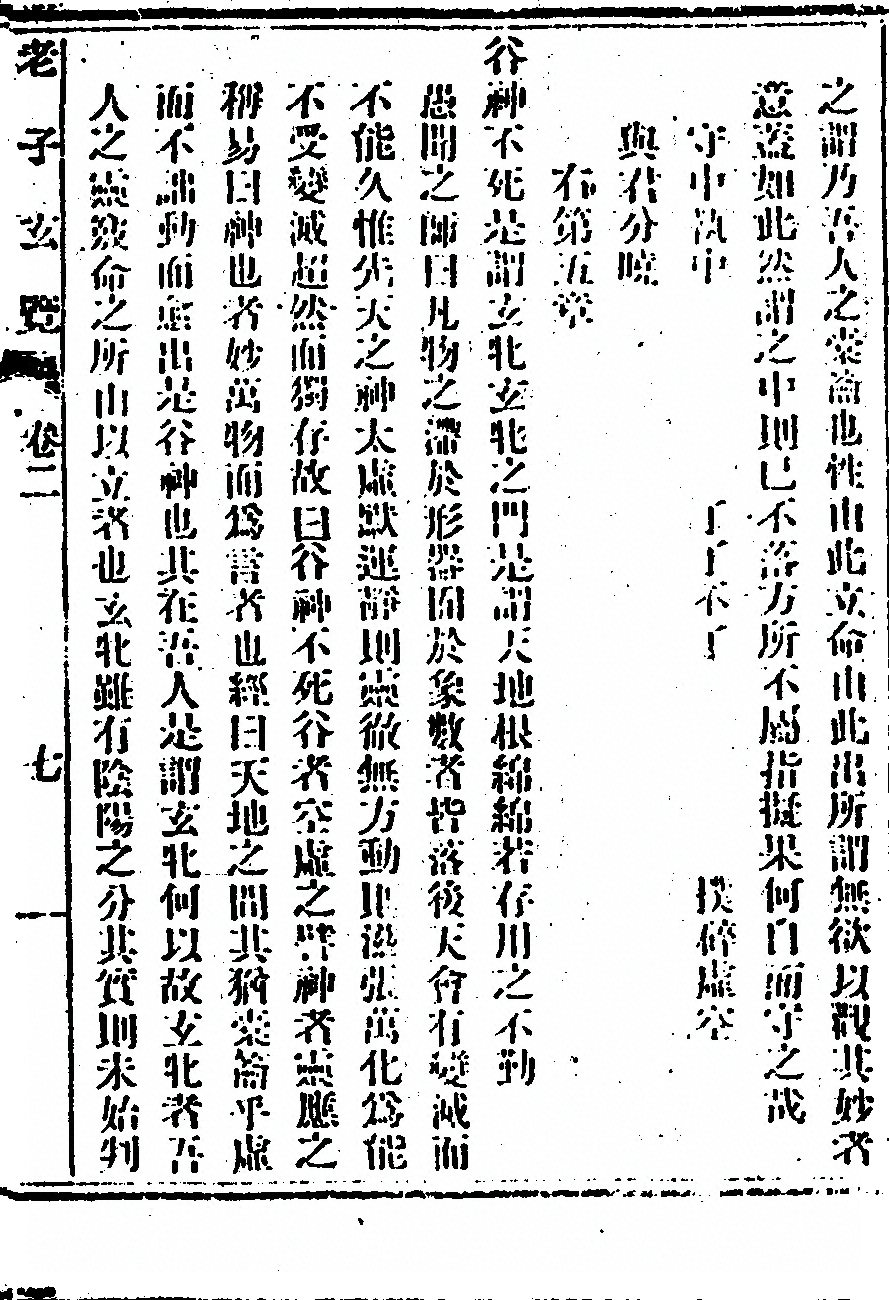 之謂乃吾人之橐籥也性由此立命由此出所謂無欲以觀其妙者
意蓋如此然謂之中則已不落方所不屬指擬果何自而守之哉
守中执中　了了不了　撲碎虛空
與君分曉
右第五章
谷神不死是謂玄牝玄牝之門是謂天地根綿綿若存用之不勤
愚聞之師曰凡物之滯於形器囿於象數者皆落後天會有變滅而
不能久惟先天之神太虛默運靜則靈徹無方動則滋張萬化爲能
不受變滅超然而獨存故曰谷神不死谷者空虛之譬神者靈應之
稱易曰神也者妙萬物而爲言者也經曰天地之間其猶橐籥乎虛
而不詘動而愈出是谷神也其在吾人是謂玄牝何以故玄牝者吾
人之靈竅命之所由以立者也玄牝雖有陰陽之分其實則未始判
老子玄覽　卷二　七